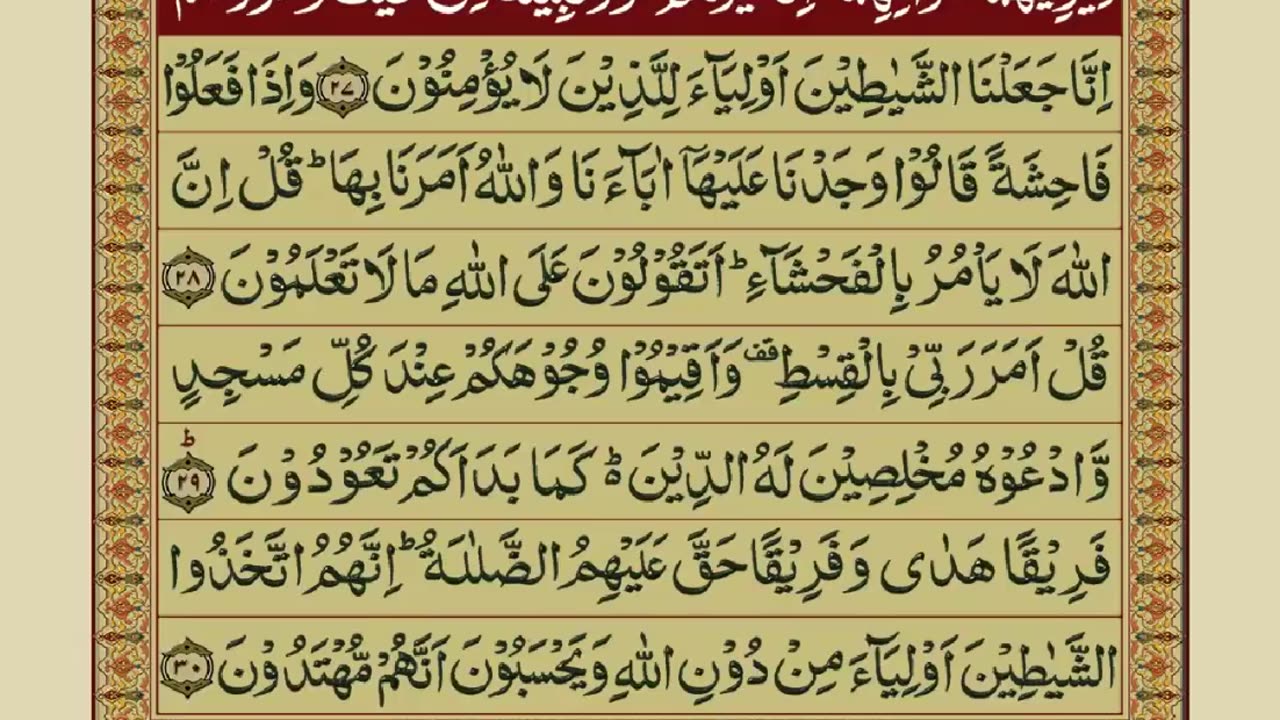 اِنَّا جَعَلْنَا الشَّيٰطِيْنَ اَوْلِيَآءَ لِلَّذِيْنَ لَا يُؤْمِنُوْنَ ﴿۲۷﴾ وَاِذَا فَعَلُوْا
فَاحِشَةً قَالُوْا وَجَدْنَا عَلَيْهَآ اٰبَآءَنَا وَاللّٰهُ اَمَرَنَا بِهَا ؕ قُلْ اِنَّ
اللّٰهَ لَا يَاْمُرُ بِالْفَحْشَآءِ ؕ اَتَقُوْلُوْنَ عَلَى اللّٰهِ مَا لَا تَعْلَمُوْنَ ﴿۲۸﴾
قُلْ اَمَرَ رَبِّيْ بِالْقِسْطِ قف وَاَقِيْمُوْا وُجُوْهَكُمْ عِنْدَ كُلِّ مَسْجِدٍ
وَّادْعُوْهُ مُخْلِصِيْنَ لَهُ الدِّيْنَ ؕ كَمَا بَدَاَكُمْ تَعُوْدُوْنَ ﴿۲۹﴾ؕ
فَرِيْقًا هَدٰى وَفَرِيْقًا حَقَّ عَلَيْهِمُ الضَّلٰلَةُ ؕ اِنَّهُمُ اتَّخَذُوا
الشَّيٰطِيْنَ اَوْلِيَآءَ مِنْ دُوْنِ اللّٰهِ وَيَحْسَبُوْنَ اَنَّهُمْ مُّهْتَدُوْنَ ﴿۳۰﴾